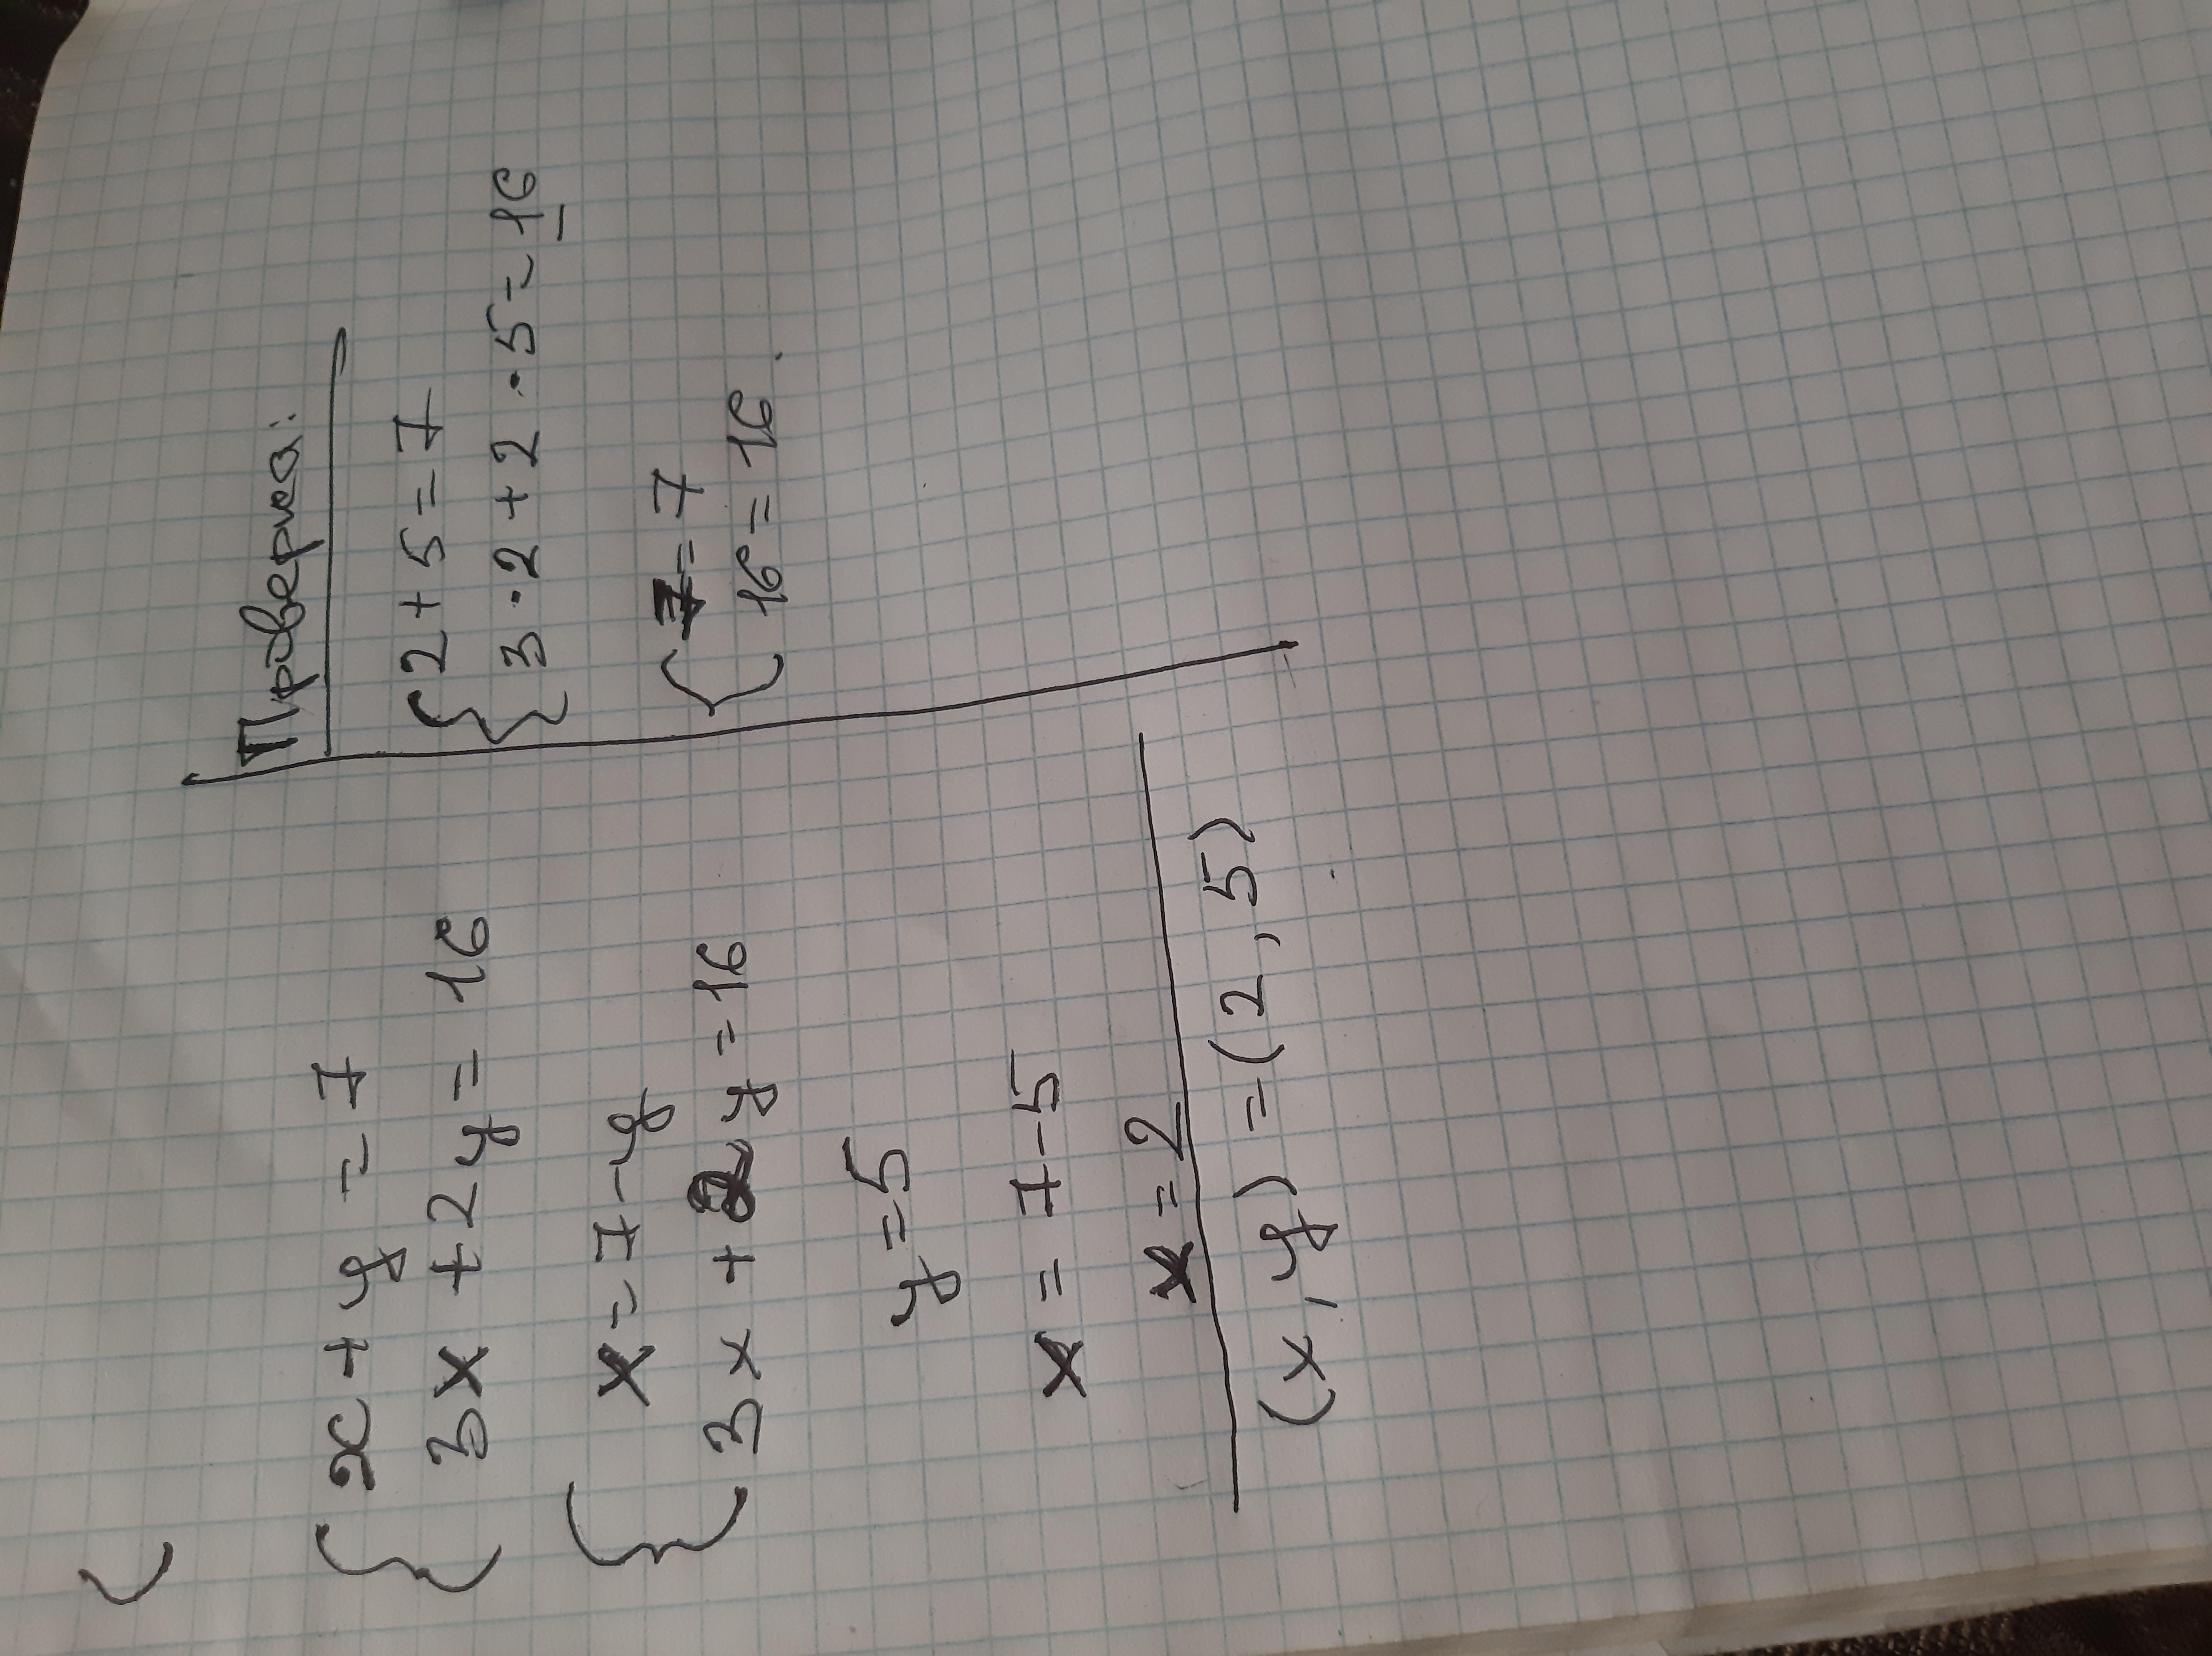 x + y = 7
3x + 2y = 16
x = 7 - y
3x + 2y = 16
y = 5
x = 7 - 5
x = 2
(x, y) = (2, 5)
Проверка:
2 + 5 = 7
3 · 2 + 2 · 5 = 16
7 = 7
16 = 16